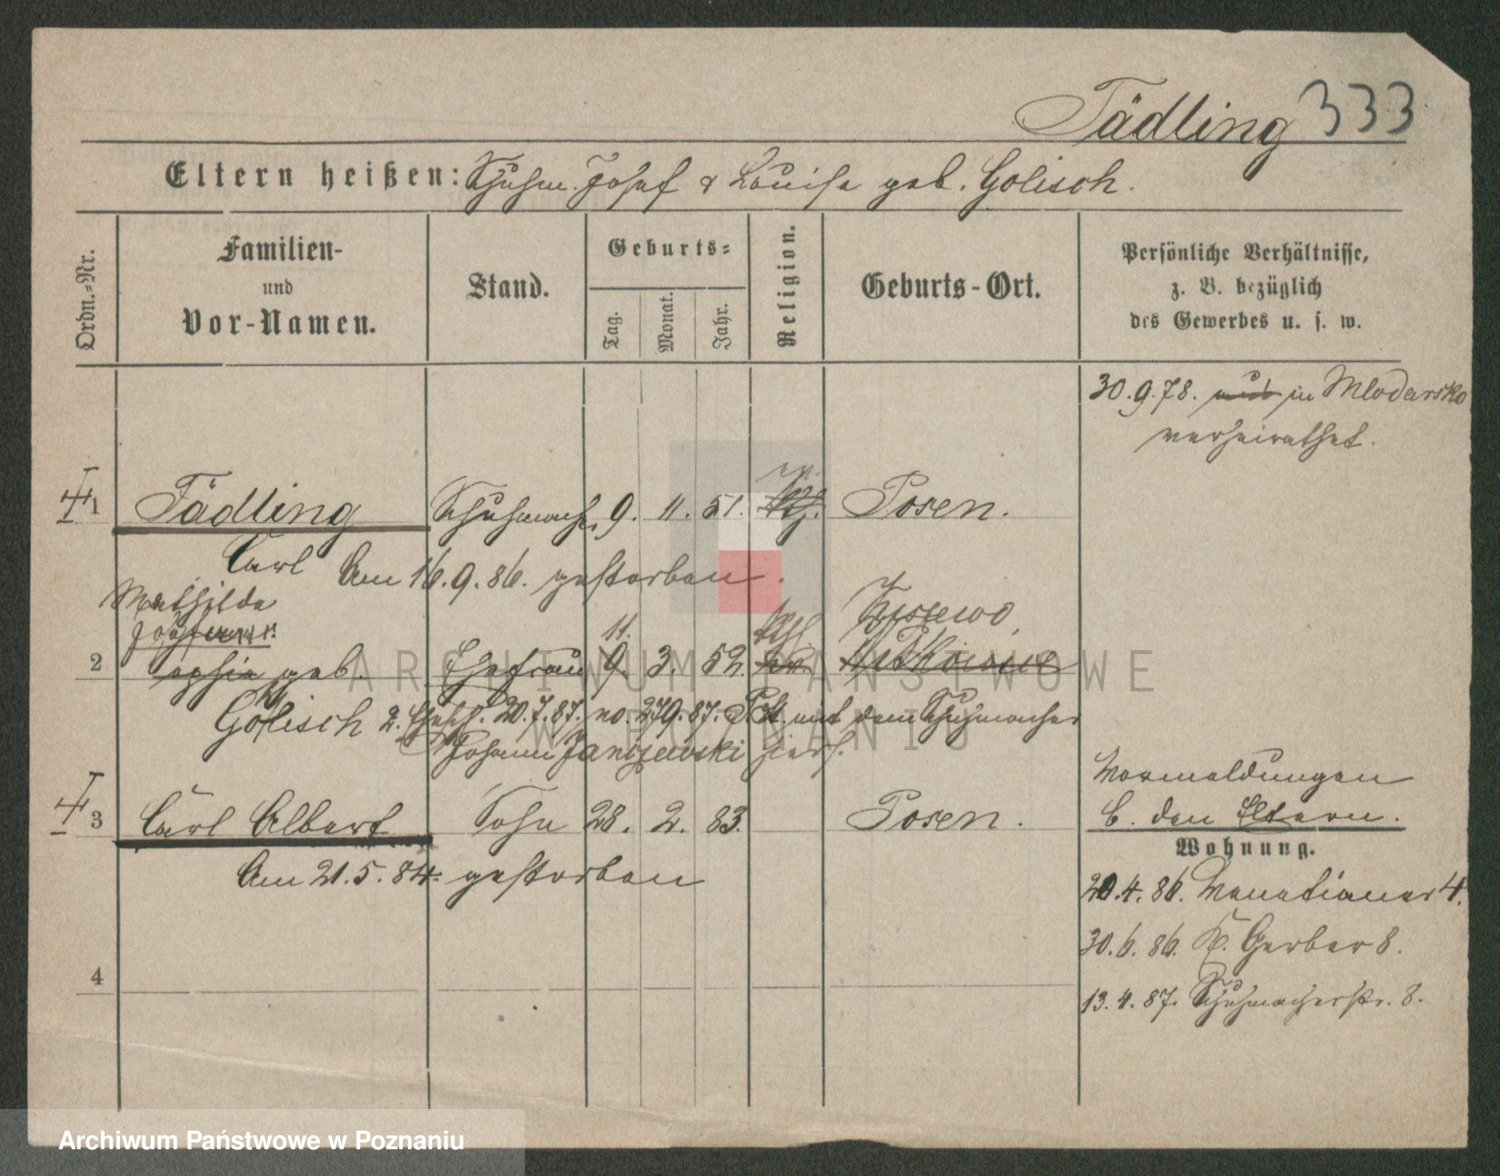 Tädling 333
Eltern heißen: Schuhm. Josef & Louise geb. Golisch.
Ordn.-Nr.
Familien-
und
Vor-Namen.
Stand.
Geburts-
Tag.
Monat.
Jahr.
Religion.
Geburts-Ort.
Persönliche Verhältnisse,
z. B. bezüglich
des Gewerbes u. s. w.
30.9.78. in Mlodarsko
verheirathet.
1 Tädling Schuhmacher 9. 11. 51. Posen.
Carl Am 16.9.86. gestorben.
Mathilde
11. Kth
2 Sophie geb. Ehefrau 9. 3. 52.
Golisch 2. 20.7.87. no. 279.87. mit dem Schuhmacher
Johann Janiszewski hier.
3 Carl Albert Sohn 28. 2. 83. Posen.
Am 21.5.84. gestorben
Vormeldungen
b. den Eltern.
Wohnung.
20.4.86. Venetianer 4.
30.6.86. K. Gerber 8.
13.4.87. Schuhmacherstr. 8.
4
ARCHIWUM PAŃSTWOWE
W POZNANIU
Archiwum Państwowe w Poznaniu